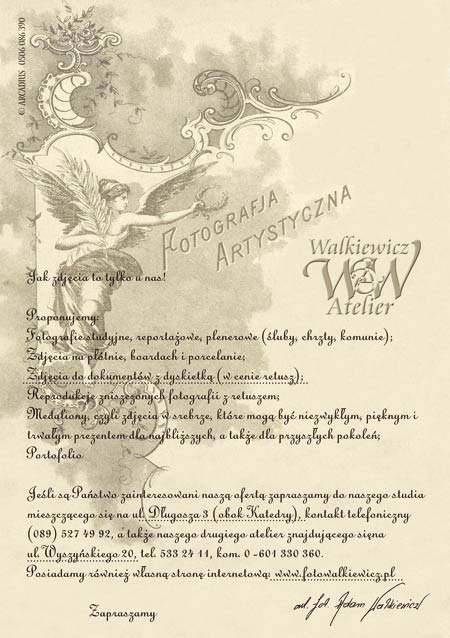 © ARCADIUS 0506 086 390
FOTOGRAFJA
ARTYSTYCZNA
Walkiewicz
W&W
Atelier
Jak zdjęcia to tylko u nas!
Proponujemy:
Fotografie studyjne, reportażowe, plenerowe (śluby, chrzty, komunie);
Zdjęcia na płótnie, boardach i porcelanie;
Zdjęcia do dokumentów z dyskietką (w cenie retusz);
Reprodukcje zniszczonych fotografii z retuszem;
Medaliony, czyli zdjęcia w srebrze, które mogą być niezwykłym, pięknym i
trwałym prezentem dla najbliższych, a także dla przyszłych pokoleń;
Portofolio
Jeśli są Państwo zainteresowani naszą ofertą zapraszamy do naszego studia
mieszczącego się na ul. Długosza 3 (obok Katedry), kontakt telefoniczny
(089) 527 49 92, a także naszego drugiego atelier znajdującego sięna
ul. Wyszyńskiego 20, tel. 533 24 11, kom. 0-601 330 360.
Posiadamy również własną stronę internetową: www.fotowalkiewicz.pl
Zapraszamy
art. fot. Adam Walkiewicz